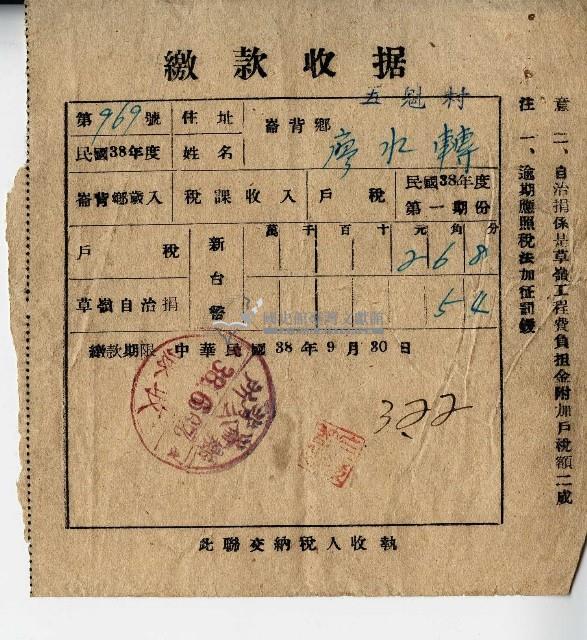 繳款收据
五魁村
第969號 住址 崙背鄉
民國38年度 姓名 廖水轉
崙背鄉歲入 稅課收入 戶稅 民國38年度第一期份
萬千百十元角分
戶稅 新台幣 268
草嶺自治捐 54
繳款期限 中華民國38年9月30日
38.6
322
此聯交納稅人收執
注 一、逾期應照稅法加征罰鍰
意 二、自治捐係是草嶺工程費負担金附加戶稅額二成
國史館臺灣文獻館